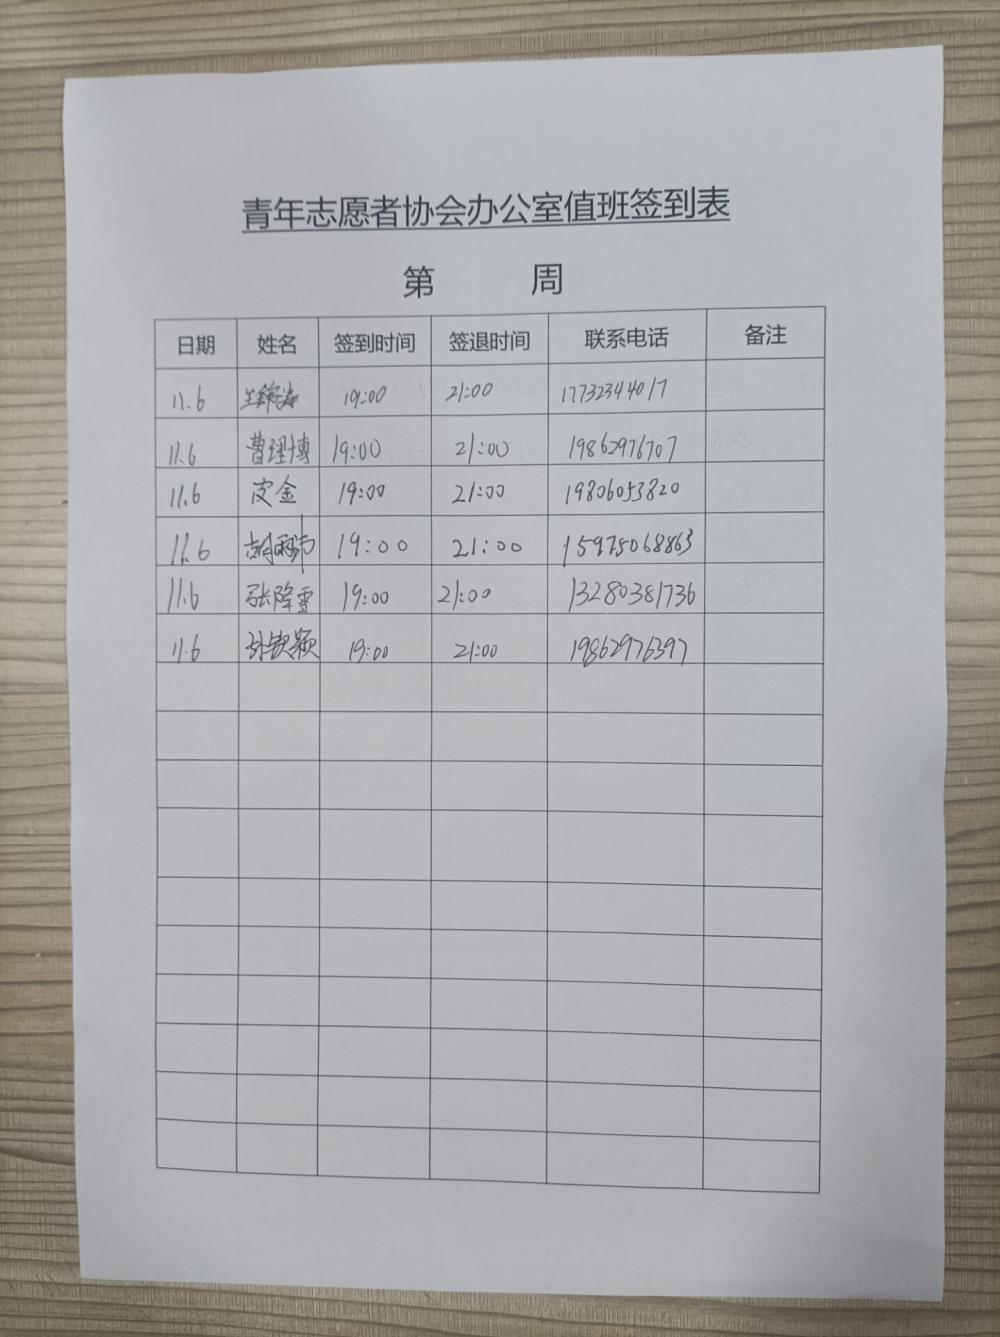 青年志愿者协会办公室值班签到表
第 周
日期 姓名 签到时间 签退时间 联系电话 备注
11.6 19:00 21:00 17732344017
11.6 曹理博 19:00 21:00 19862976707
11.6 皮金 19:00 21:00 19806053820
11.6 19:00 21:00 15975068863
11.6 张降雪 19:00 21:00 13280381736
11.6 19:00 21:00 19862976397